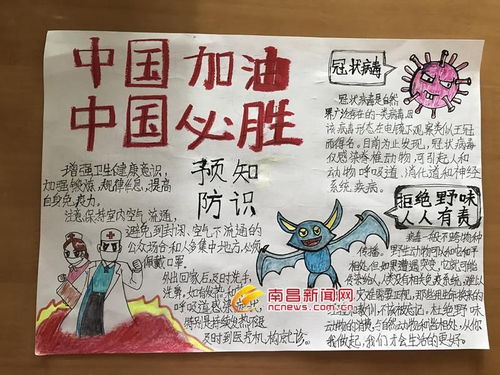 中国加油
中国必胜
预防知识
增强卫生健康意识,
加强锻炼,规律作息,提高
自身免疫力,
注意保持室内空气流通,
避免到封闭、空气不流通的
公众场合和人多集中地方,必须
佩戴口罩
外出回家后及时洗手,
呼吸道感染症状
特别是持续发热不退
及时到医疗机构就诊。
冠状病毒
冠状病毒是自然
界广泛存在的一类病毒,因
该病毒形态在电镜下观察类似王冠
而得名。目前为止发现,冠状病毒
仅感染脊椎动物,可引起人和
动物呼吸道、消化道和神经
系统疾病。
拒绝野味
人人有责
病毒一般不跨物种
传播。
南昌新闻网
ncnews.com.cn
动物的消费,与自然动物和谐相处,从你
我做起,我们才会生活的更好。